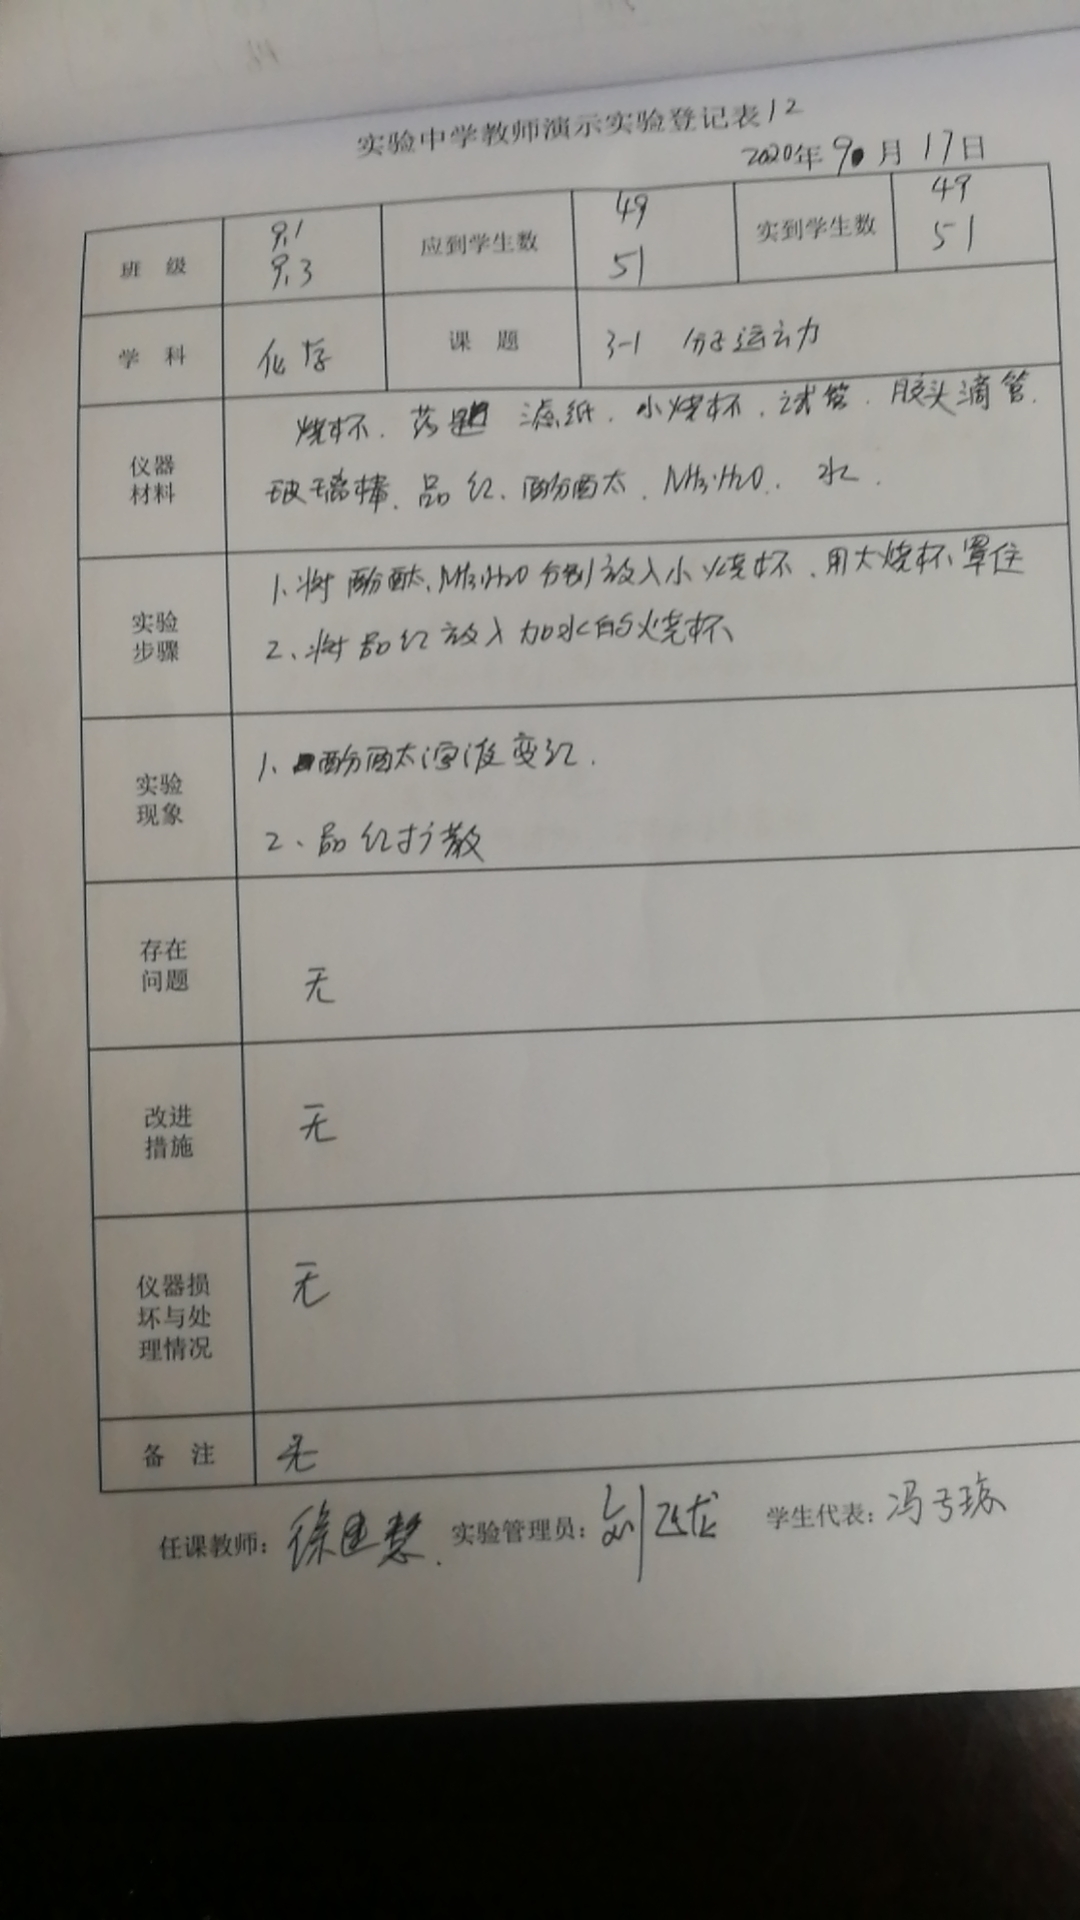 实验中学教师演示实验登记表12
2020年9月17日
班 级 9.1 9.3 应到学生数 49 51 实到学生数 49 51
学 科 化学 课 题 3-1 分子运动
仪器材料 烧杯、滤纸、小烧杯、试管、胶头滴管、
玻璃棒、品红、酚酞、NH3·H2O、水.
实验步骤 1、将酚酞、NH3·H2O分别放入小烧杯、用大烧杯罩住
2、将品红放入加水的烧杯、
实验现象 1、酚酞溶液变红.
2、品红扩散
存在问题 无
改进措施 无
仪器损坏与处理情况 无
备 注 无
任课教师: 徐 慧. 实验管理员: 刘飞龙 学生代表: 冯